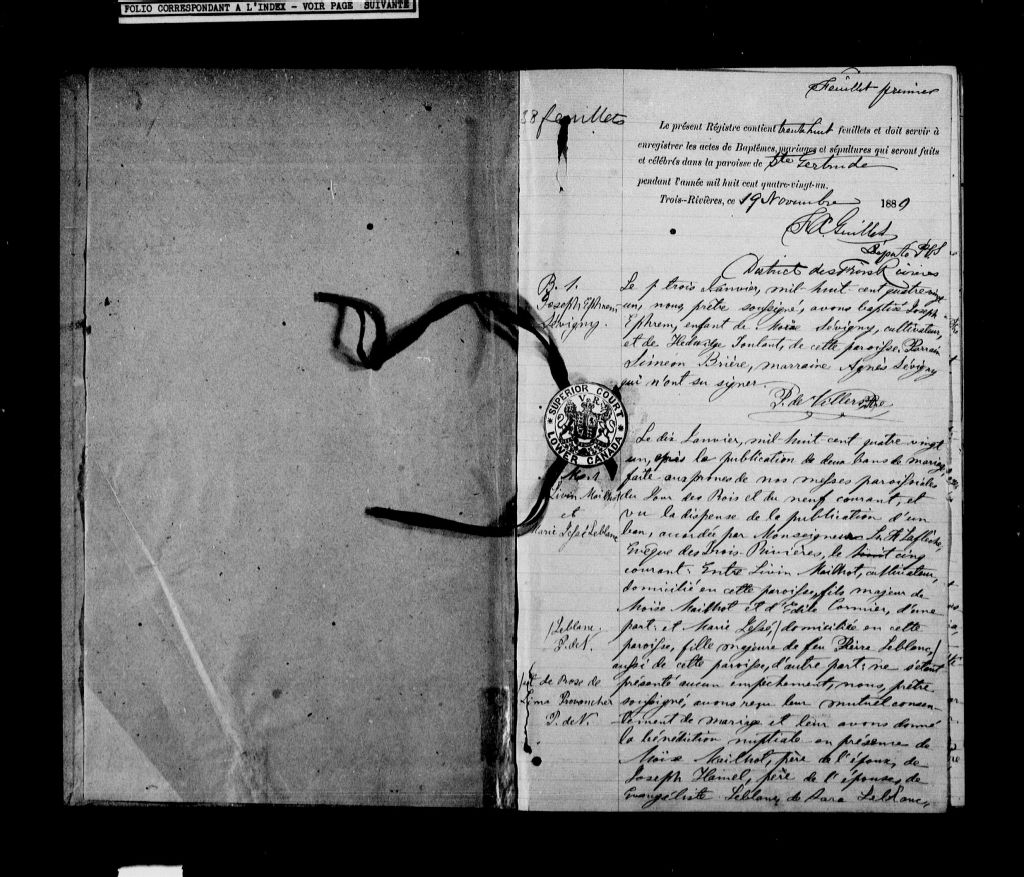 FOLIO CORRESPONDANT A L'INDEX - VOIR PAGE SUIVANTE
Feuillet premier
38 feuillets
Le présent Régistre contient trente huit feuillets et doit servir à
enregistrer les actes de Baptêmes, mariages et sépultures qui seront faits
et célébrés dans la paroisse de Ste Gertrude
pendant l'année mil huit cent quatre-vingt-un.
Trois-Rivières, ce 19 Novembre 1880
F.X. Guillet
Député P.C.S
District des Trois Rivières
B. 1.
Joseph Ephrem
Sévigny.
Le trois Janvier, mil huit cent quatre vingt
un, nous, prêtre soussigné, avons baptisé Joseph
Ephrem, enfant de Moïse Sévigny, cultivateur,
et de Hedwidge Toutant, de cette paroisse. Parrain
Siméon Brière, marraine Agnès Sévigny
qui n'ont su signer.
P. de Villers Ptre
SUPERIOR COURT
V R
LOWER CANADA
M. 1
Livin Mailhot
et
Marie Jessé Leblanc
Le dix Janvier, mil huit cent quatre vingt
un, après la publication de deux bans de mariage
faite aux prônes de nos messes paroissiales
du Jour des Rois et du neuf courant, et
vu la dispense de la publication d'un
ban, accordée par Monseigneur Ls. F. Lafleche,
Evêque des Trois-Rivières, le huit cinq
courant: Entre Livin Mailhot, cultivateur,
domicilié en cette paroisse, fils majeur de
Moïse Mailhot et d'Odile Cormier, d'une
part: et Marie Jessé,/ domiciliée en cette
paroisse, fille majeure de feu Pierre Leblanc,/
aussi de cette paroisse, d'autre part: ne s'étant
présenté aucun empêchement, nous, prêtre
soussigné, avons reçu leur mutuel consen
tement de mariage et leur avons donné
la bénédiction nuptiale en présence de
Moïse Mailhot, père de l'époux, de
Joseph Hamel, père de l'épouse, de
Evangéliste Leblanc, de Sara Leblanc,
/Leblanc,
P. de V.
/et de Rose de
Lima Provancher
P. de V.